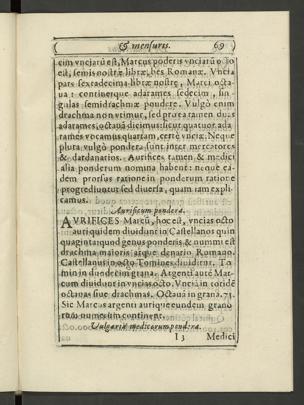 & mensuris. 69
cim vnciarū est, Marcus põderis vnciarū octo
est, semis nostræ libræ, bes Romanæ. Vncia
pars sextadecima libræ nostræ, Marci octa-
ua: continetque adarames sedecim, sin-
gulas semidrachmiæ pondere. Vulgò enim
drachma non vtimur, sed pro ea tamen duas
adarames, octauā dicimus: sicut quatuor ada-
rames vocamus quartam, certè vnciæ. Neque
plura vulgò pondera sunt inter mercatores
& dardanarios. Aurifices tamen & medici
alia ponderum nomina habent: neque ea-
dem prorsus ratione in ponderum ratione
progrediuntur sed diuersa, quam iam expli-
camus.
Aurificum pondera.
AVRIFICES Marcū, hoc est, vncias octo
auri quidem diuidunt in Castellanos quin
quaginta: quod genus ponderis & nummi est
drachma maioris atque denario Romano.
Castellanus in octo Tomines diuiditur. To-
min in duodecim grana. Argenti autē Mar-
cum diuidunt in vncias octo. Vnciā in totidē
octauas siue drachmas. Octauā in grana. 75.
Sic Marcus argenti auri que eundem grano
rum numerum continent.
Vulgaria medicorum pondera.
I 3 Medici